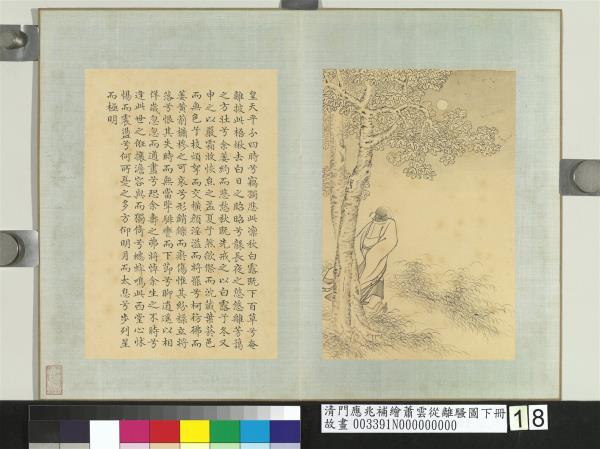 皇天平分四時兮竊獨悲此凜秋白露既下百草兮奄
離披此梧楸去白日之昭昭兮襲長夜之悠悠離芳藹
之方壯兮余萎約而悲愁秋既先戒之以白露兮冬又
申之以嚴霜收恢台之孟夏兮然欿傺而沈藏葉菸邑
而無色兮枝煩挐而交橫顏淫溢而將罷兮柯彷彿而
萎黃萷櫹槮之可哀兮形銷鑠而瘀傷惟其紛糅而將
落兮恨其失時而無當擥騑轡而下節兮聊逍遙以相
佯歲忽忽而遒盡兮恐余壽之弗將悼余生之不時兮
逢此世之俇攘澹容與而獨倚兮蟋蟀鳴此西堂心怵
惕而震盪兮何所憂之多方仰明月而太息兮步列星
而極明
清門應兆補繪蕭雲從離騷圖下冊
故畫 003391N000000000
18